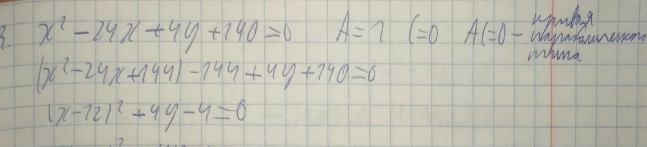 3. x² - 24x + 4y + 140 = 0   A = 1   C = 0   AC = 0 - кривая параболического типа
(x² - 24x + 144) - 144 + 4y + 140 = 0
(x - 12)² + 4y - 4 = 0